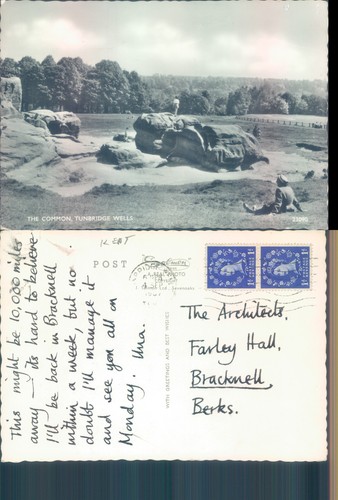 THE COMMON, TUNBRIDGE WELLS
K EBT
POST
A REAL PHOTO
WITH GREETINGS AND BEST WISHES
This might be 10,000 miles
away — its hard to believe
I'll be back in Bracknell
within a week, but no
doubt I'll manage it
and see you all on
Monday. Una.
The Architects.
Farley Hall,
Bracknell,
Berks.